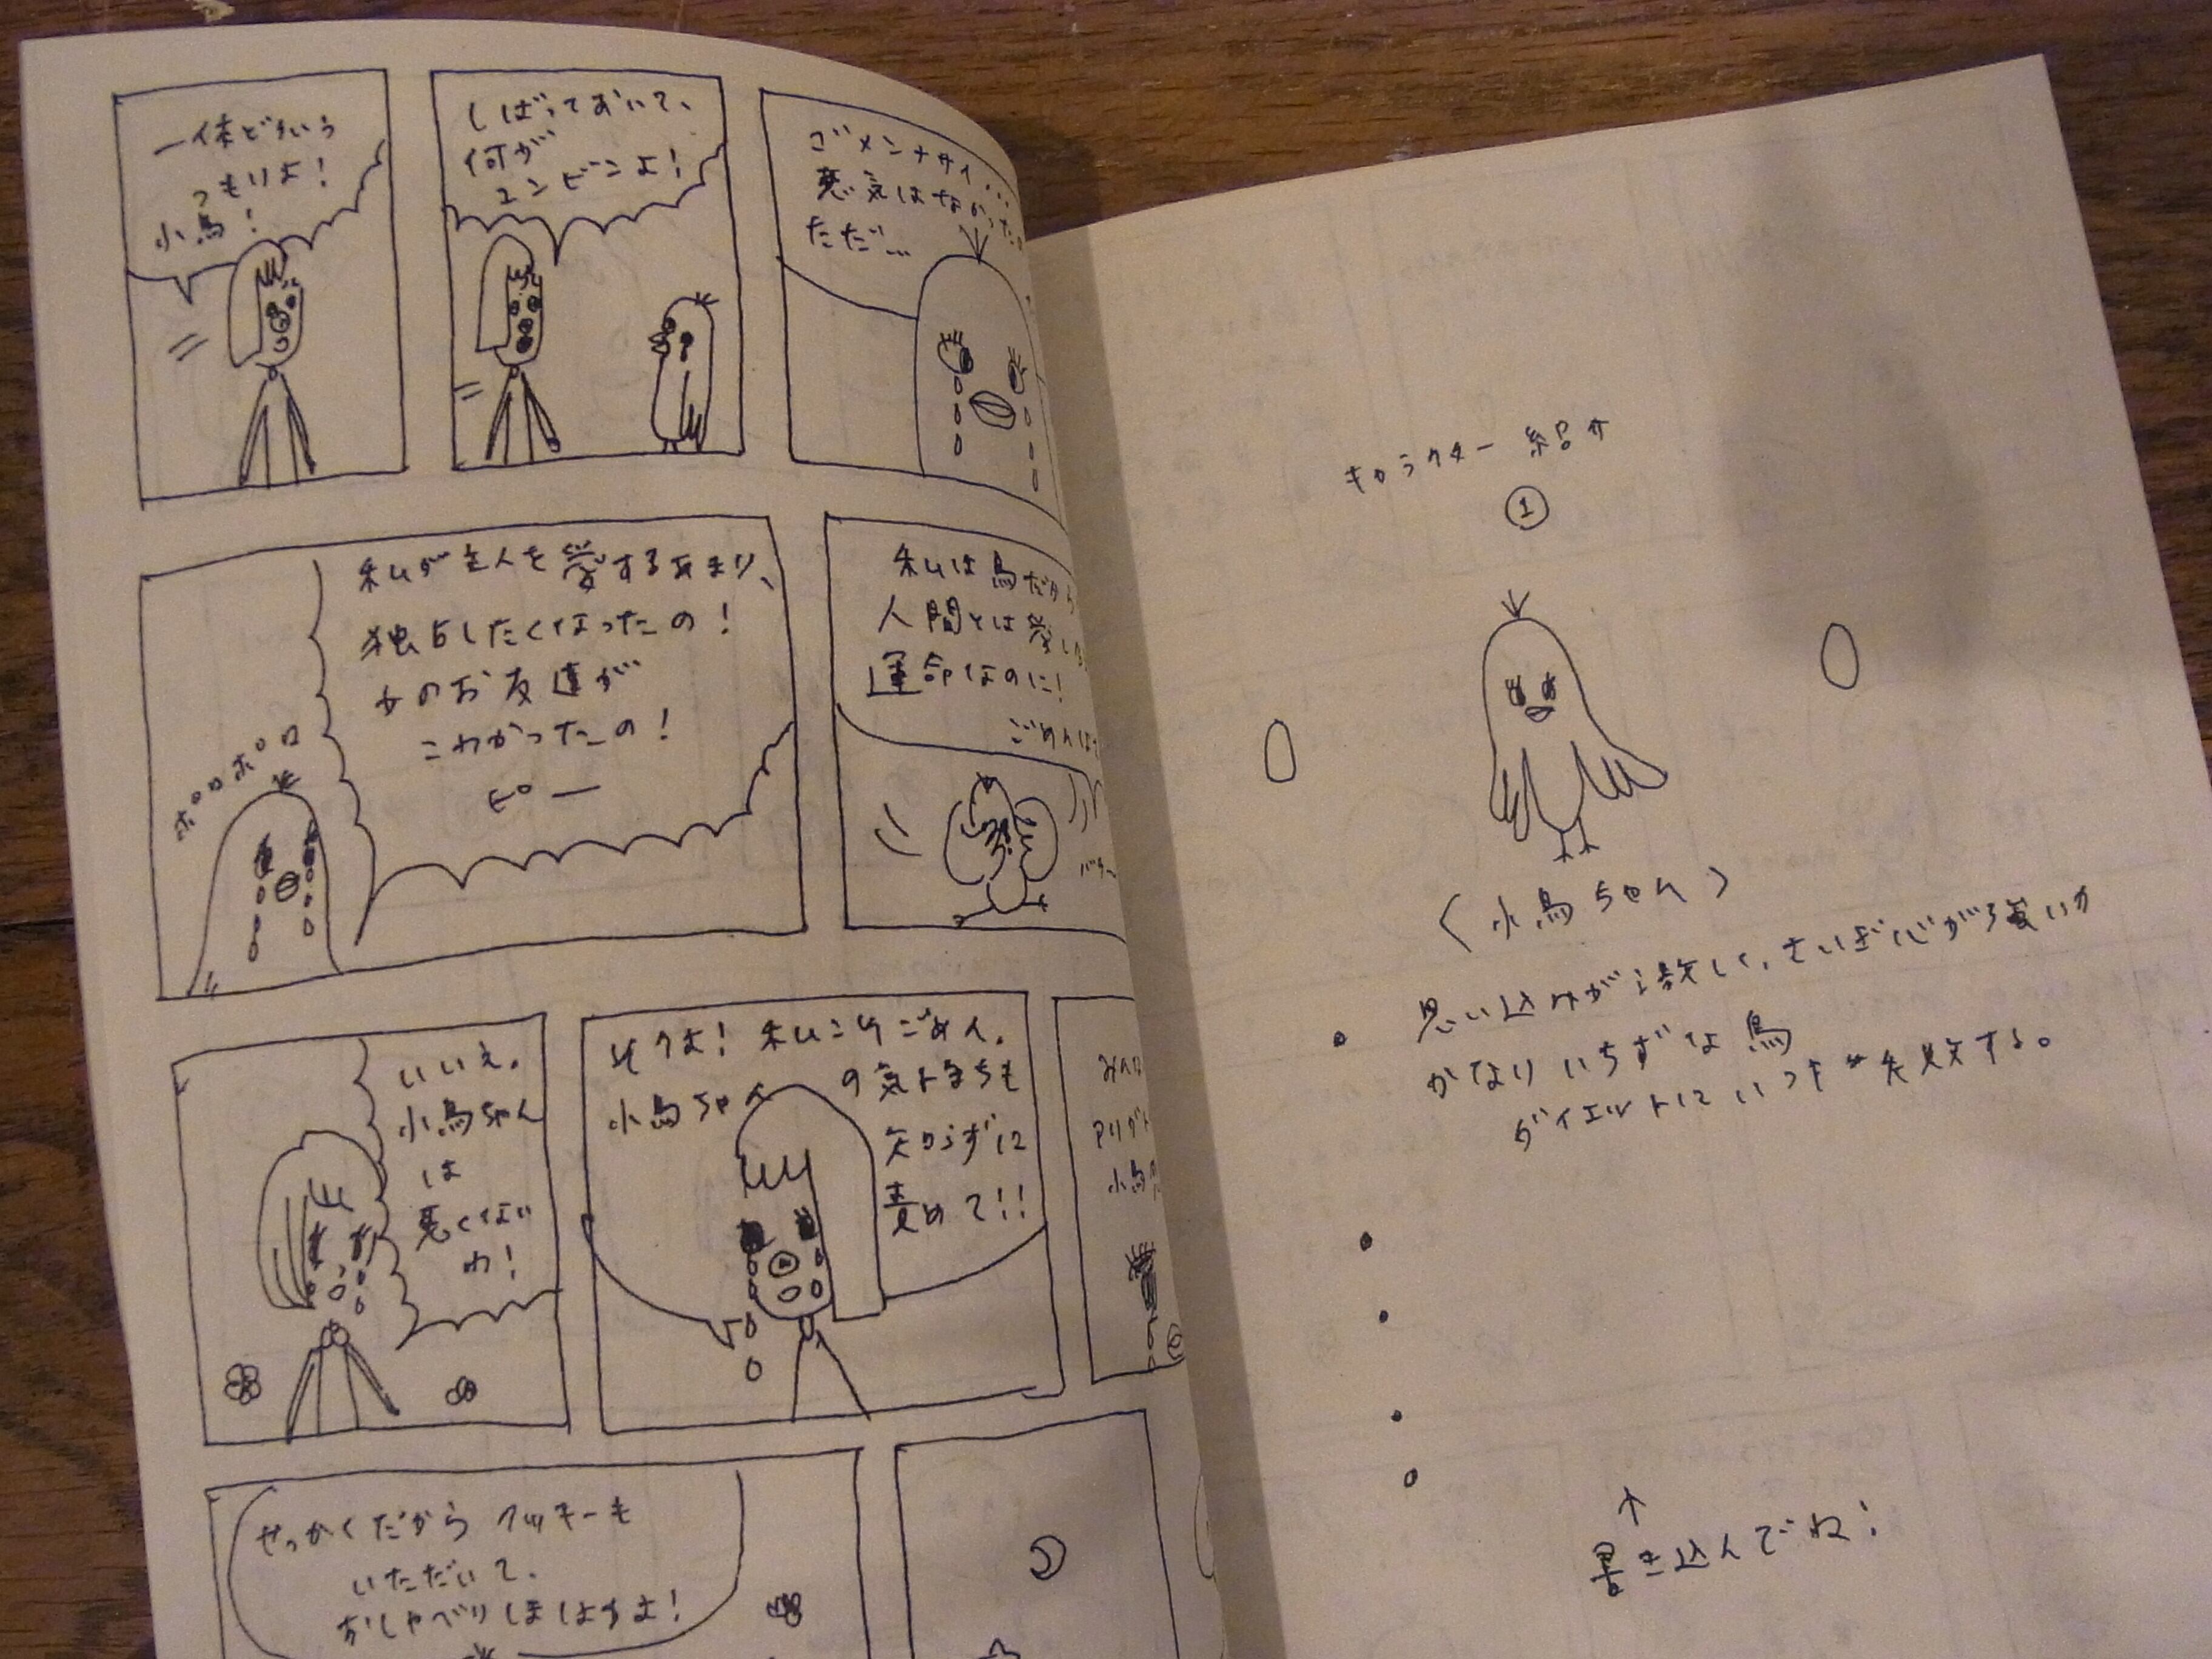 一体どういう
つもりよ!
小鳥!
しばっておいて、
何が
ユンビンよ!
ゴメンナサイ...
悪気はなかった。
ただ...
私が主人を愛するあまり、
独占したくなったの!
女のお友達が
こわかったの!
ピー
ポロポロ
私は鳥だから
人間とは愛し
運命なのに!
ごめんな
バサ
いいえ。
小鳥ちゃん
は
悪くない
わ!
そうよ!私こそごめん。
小鳥ちゃん
の気持ちも
知らずに
責めて!!
みんな
アリガト
小鳥
せっかくだからクッキーも
いただいて、
おしゃべりしましょうよ!
キャラクター紹介
①
〈小鳥ちゃん〉
• 思い込みが激しく、さいぎ心が強いが
かなりいちずな鳥
ダイエットにいつも失敗する。
•
•
•
•
↑
書き込んでね!